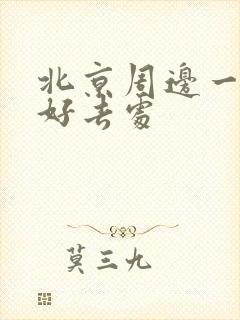 北京周邊一
好去處
莫三九